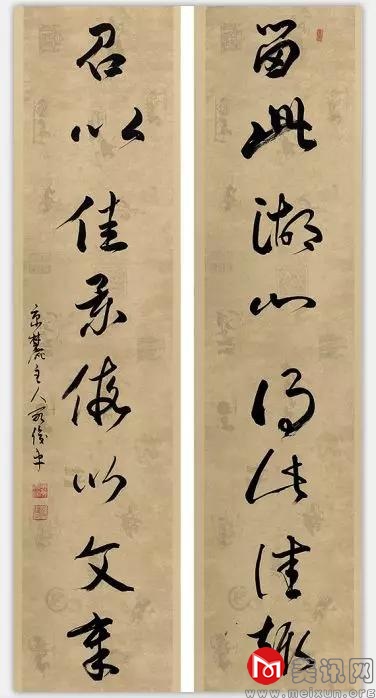 留此湖山得此佳趣
召以佳景假以文章
京麓主人
美讯网
www.meixun.org